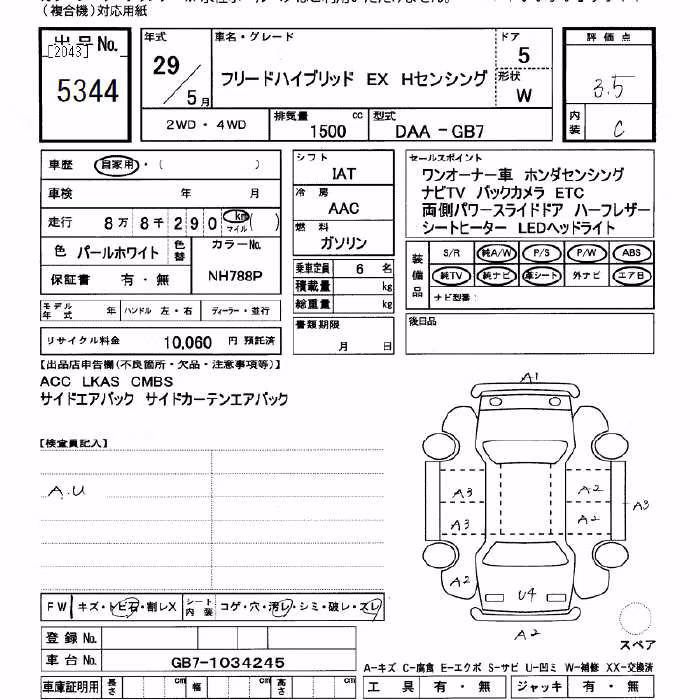 （複合機）対応用紙
出品No.
[2043]
5344
年式
29
5月
車名・グレード
フリードハイブリッド EX Hセンシング
ドア
5
形状
W
2WD・4WD
排気量 cc
1500
型式
DAA-GB7
評価点
3.5
内装
C
車歴 自家用・( )
車検 年 月
走行 8万8千290 km マイル ( )
色 パールホワイト
色替
カラーNo.
NH788P
保証書 有・無
モデル年式 年 ハンドル 左・右 ディーラー・並行
リサイクル料金 10,060 円 預託済
シフト
IAT
冷房
AAC
燃料
ガソリン
乗車定員 6 名
積載量 kg
総重量 kg
書類期限
月 日
セールスポイント
ワンオーナー車 ホンダセンシング
ナビTV バックカメラ ETC
両側パワースライドドア ハーフレザー
シートヒーター LEDヘッドライト
装備品
S/R 純A/W P/S P/W ABS
純TV 純ナビ 革シート 外ナビ エアB
ナビ型番:
後日品
【出品店申告欄(不良箇所・欠品・注意事項等)】
ACC LKAS CMBS
サイドエアバック サイドカーテンエアバック
【検査員記入】
A.U
A1
A3
A2
A3
A3
A2
A2
U4
A2
スペア
FW キズ・トビ石・割レX シート内装 コゲ・穴・汚レ・シミ・破レ・スレ
登録No.
車台No. GB7-1034245
車庫証明用 長さ cm 幅 cm 高さ cm
A-キズ C-腐食 E-エクボ S-サビ U-凹ミ W-補修 XX-交換済
工具 有・無 ジャッキ 有・無